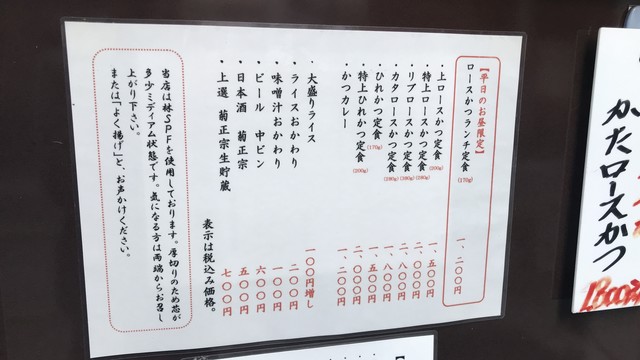 【平日のお昼限定】
ロースかつランチ定食(170g) 一、二〇〇円
・上ロースかつ定食 一、五〇〇円
・特上ロースかつ定食 二、〇〇〇円
・リブロースかつ定食 一、八〇〇円
・カタロースかつ定食 一、八〇〇円
・ひれかつ定食(170g) 一、五〇〇円
・特上ひれかつ定食(200g) 二、〇〇〇円
・かつカレー 一、二〇〇円
・大盛りライス 一〇〇円増し
・ライスおかわり 二〇〇円
・味噌汁おかわり 一〇〇円
・ビール 中ビン 六〇〇円
・日本酒 菊正宗 五〇〇円
・上選 菊正宗生貯蔵 七〇〇円
表示は税込み価格。
当店は林SPFを使用しております。厚切りのため芯が
多少ミディアム状態です。気になる方は両端からお召し
上がり下さい。
または「よく揚げ」と、お声かけください。
かたロースかつ